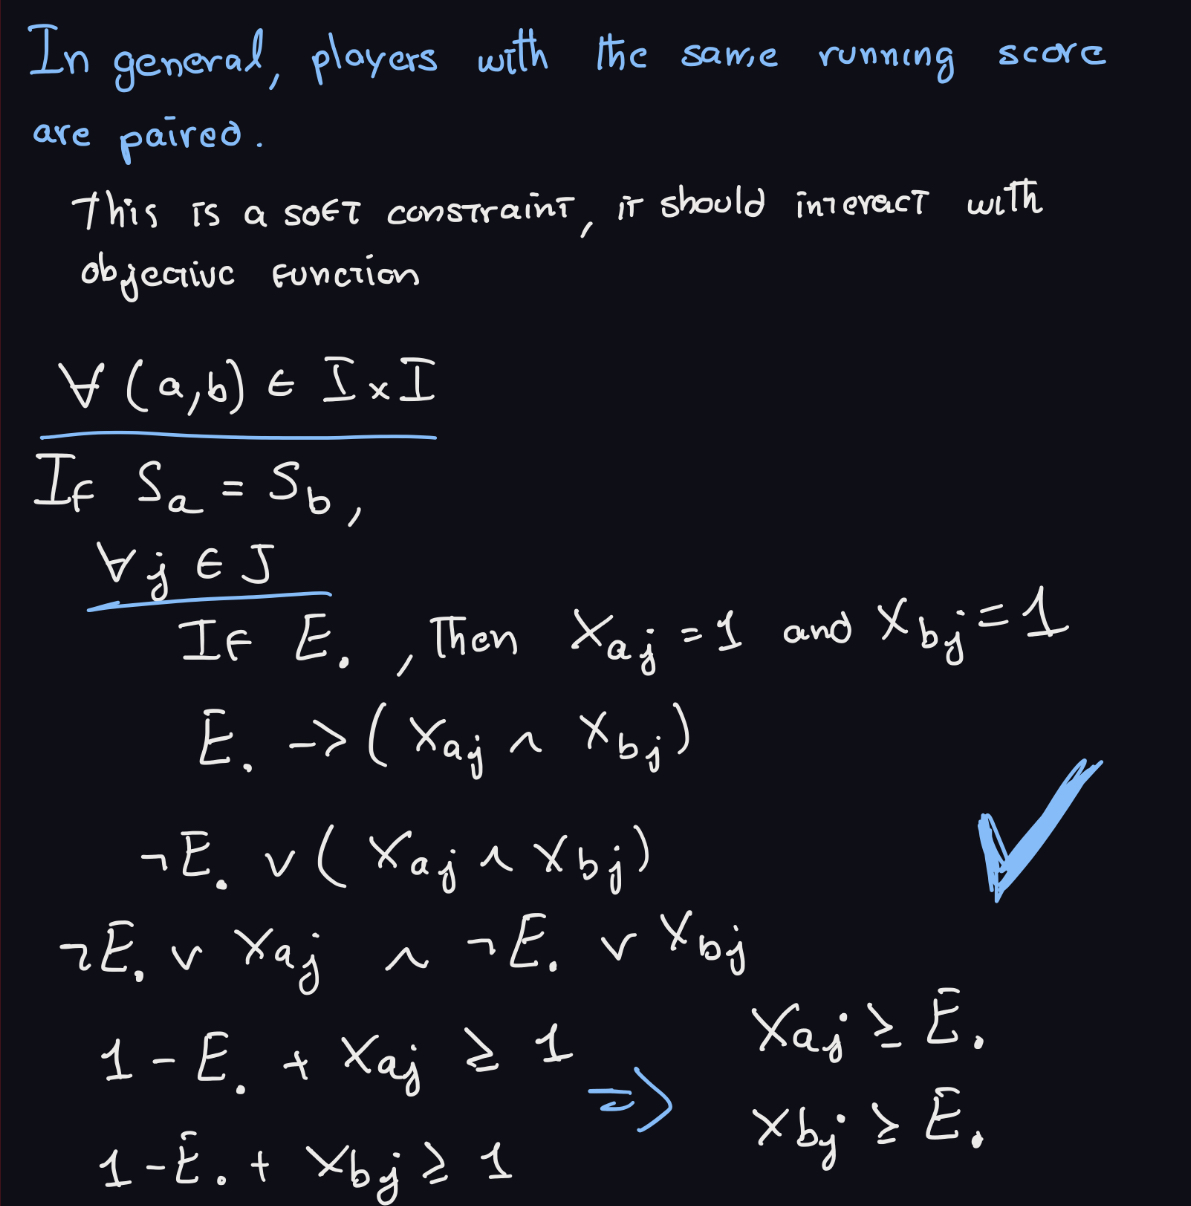 In general, players with the same running score
are paired.
This is a soft constraint, it should interact with
objective function
∀ (a,b) ∈ I×I
If S_a = S_b,
∀j ∈ J
If E. , Then X_aj = 1 and X_bj = 1
E. -> ( X_aj ∧ X_bj )
¬E. ∨ ( X_aj ∧ X_bj )
¬E. ∨ X_aj ∧ ¬E. ∨ X_bj
1 - E. + X_aj ≥ 1
1 - E. + X_bj ≥ 1
=>
X_aj ≥ E.
X_bj ≥ E.